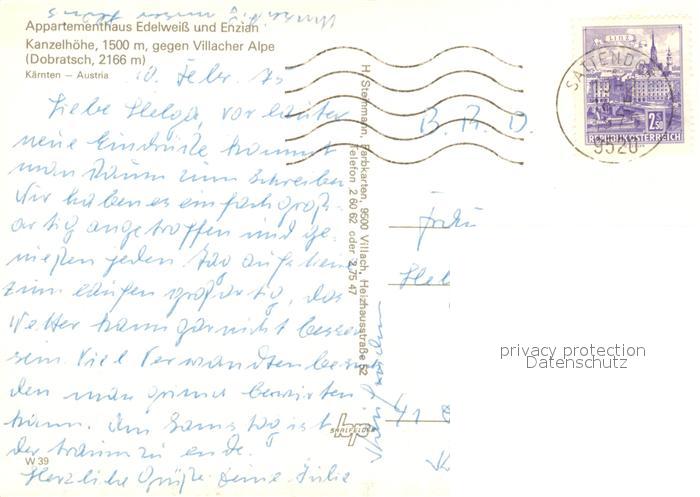 Appartementhaus Edelweiß und Enzian
Kanzelhöhe, 1500 m, gegen Villacher Alpe
(Dobratsch, 2166 m)
Kärnten — Austria
10. Febr. 75
Liebe Helga, vor lauter
neue Eindrücke kommt
man kaum zum schreiben
Wir haben es einfach groß-
artig angetroffen und ge-
nießen jeden Tag auf's neue
zum laufen großartig, das
Wetter kann garnicht besser
sein. Viel Verwandten be
den man
kann. Am Samstag ist
der traum zu ende.
Herzliche Grüße Deine Julia
W 39
H. Stemmann, Farbkarten, 9500 Villach, Heizhausstraße 52
Telefon 2 60 62 oder 2 75 47
SAALFELDEN
B. R. D.
Frau
Hel
41
LINZ
2.50
REPUBLIK ÖSTERREICH
SATTENDORF
9520
privacy protection
Datenschutz